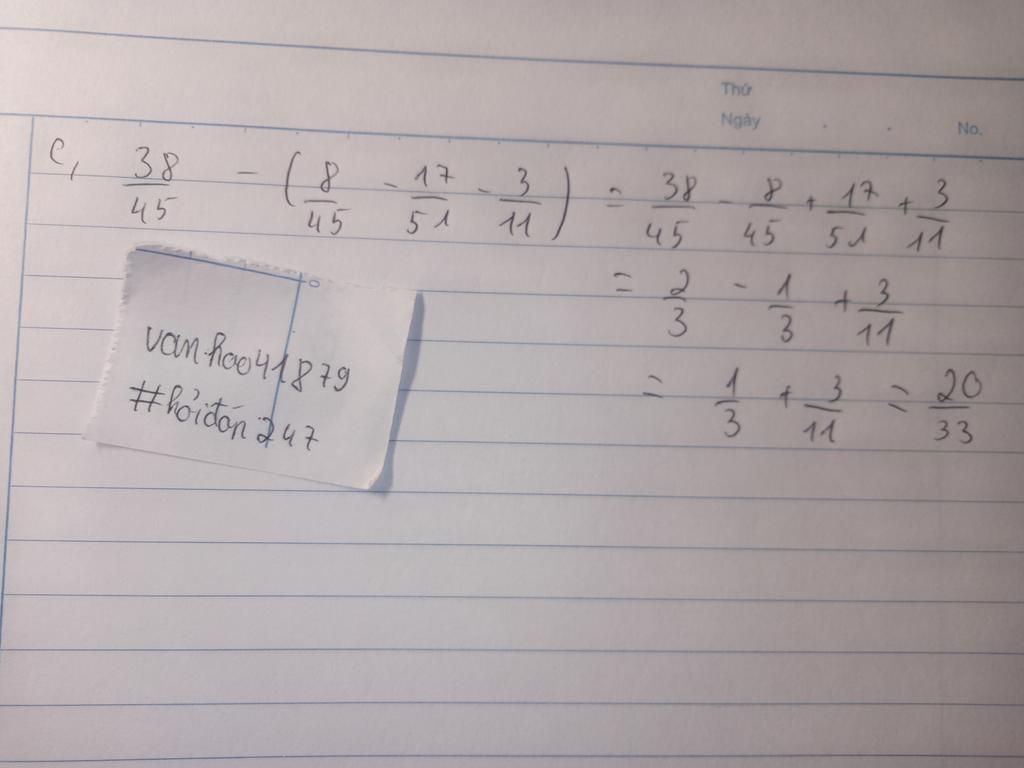 Thứ
Ngày . . No.
c, 38/45 - (8/45 - 17/51 - 3/11) = 38/45 - 8/45 + 17/51 + 3/11
= 2/3 - 1/3 + 3/11
= 1/3 + 3/11 = 20/33
vanhao41879
#hỏiđán247